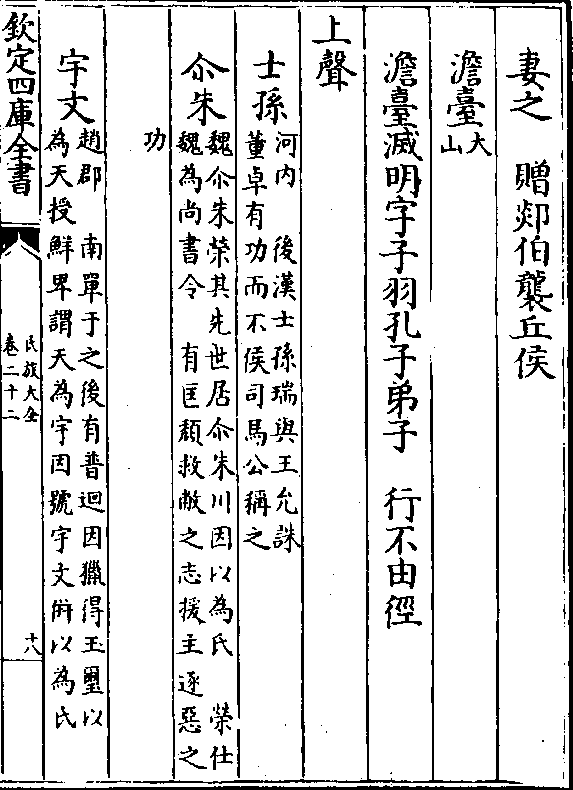 妻之　贈郯伯襲丘侯
澹臺
大
山
澹臺滅明字子羽孔子弟子　行不由徑
上聲
士孫
河内　後漢士孫瑞與王允誅
董卓有功而不侯司馬公稱之
尒朱
魏尒朱榮其先世居尒朱川因以為氏　榮仕
魏為尚書令　有匡頽救敝之志援主逐惡之
功
宇文
趙郡　南單于之後有普迴因獵得玉璽以
為天授鮮卑謂天為宇因號宇文併以為氏
欽定四庫全書
氏族大全
卷二十二
十八